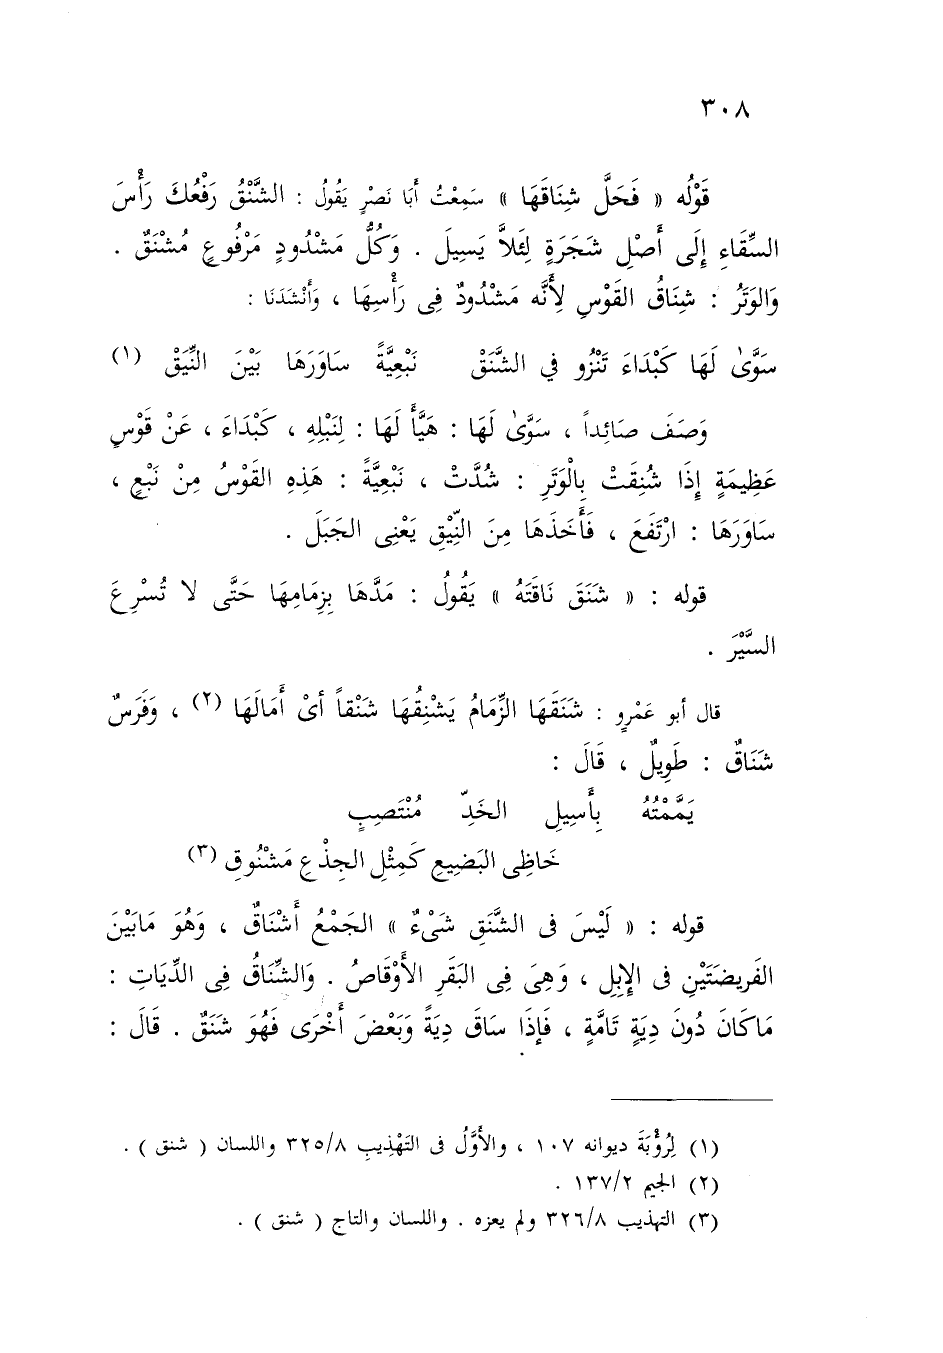 ٣٠٨
قَوْلُه « فَحَلَّ شِنَاقَهَا » سَمِعْتُ أَبَا نَصْرٍ يَقُولُ : الشَّنْقُ رَفْعُكَ رَأْسَ
السِّقَاءِ إِلَى أَصْلِ شَجَرَةٍ لِئَلاَّ يَسِيلَ . وَكُلُّ مَشْدُودٍ مَرْفُوعٍ مُشْنَقٌ .
وَالوَتَرُ : شِنَاقُ القَوْسِ لِأَنَّه مَشْدُودٌ فِى رَأْسِهَا ، وَأَنْشَدَنَا :
سَوَّىٰ لَهَا كَبْدَاءَ تَنْزُو فى الشَّنَقْ نَبْعِيَّةً سَاوَرَهَا بَيْنَ النِّيَقْ (١)
وَصَفَ صَائِداً ، سَوَّىٰ لَهَا : هَيَّأَ لَهَا : لِنَبْلِهِ ، كَبْدَاءَ ، عَنْ قَوْسٍ
عَظِيمَةٍ إِذَا شُنِقَتْ بِالْوَتَرِ : شُدَّتْ ، نَبْعِيَّةً : هَذِهِ القَوْسُ مِنْ نَبْعٍ ،
سَاوَرَهَا : ارْتَفَعَ ، فَأَخَذَهَا مِنَ النِّيْقِ يَعْنِى الجَبَلَ .
قوله : « شَنَقَ نَاقَتَهُ » يَقُولُ : مَدَّهَا بِزِمَامِهَا حَتَّى لا تُسْرِعَ
السَّيْرَ .
قال أبو عَمْرٍو : شَنَقَهَا الزِّمَامُ يَشْنِقُهَا شَنْقاً أىْ أَمَالَهَا (٢) ، وَفَرَسٌ
شَنَاقٌ : طَوِيلٌ ، قَالَ :
يَمَّمْتُهُ بِأَسِيلِ الخَدِّ مُنْتَصِبٍ
خَاظِى البَضِيعِ كَمِثْلِ الجِذْعِ مَشْنُوقِ (٣)
قوله : « لَيْسَ فى الشَّنَقِ شَىْءٌ » الجَمْعُ أَشْنَاقٌ ، وَهُوَ مَابَيْنَ
الفَرِيضَتَيْنِ فى الإِبِلِ ، وَهِىَ فِى البَقَرِ الأَوْقَاصُ . وَالشِّنَاقُ فِى الدِّيَاتِ :
مَاكَانَ دُونَ دِيَةٍ تَامَّةٍ ، فَإِذَا سَاقَ دِيَةً وَبَعْضَ أُخْرَى فَهُوَ شَنَقٌ . قَالَ :
(١) لِرُؤْبَةَ ديوانه ١٠٧ ، والأَوَّلُ فى التَهْذِيبِ ٣٢٥/٨ واللسان ( شنق ) .
(٢) الجيم ١٣٧/٢ .
(٣) التهذيب ٣٢٦/٨ ولم يعزه . واللسان والتاج ( شنق ) .